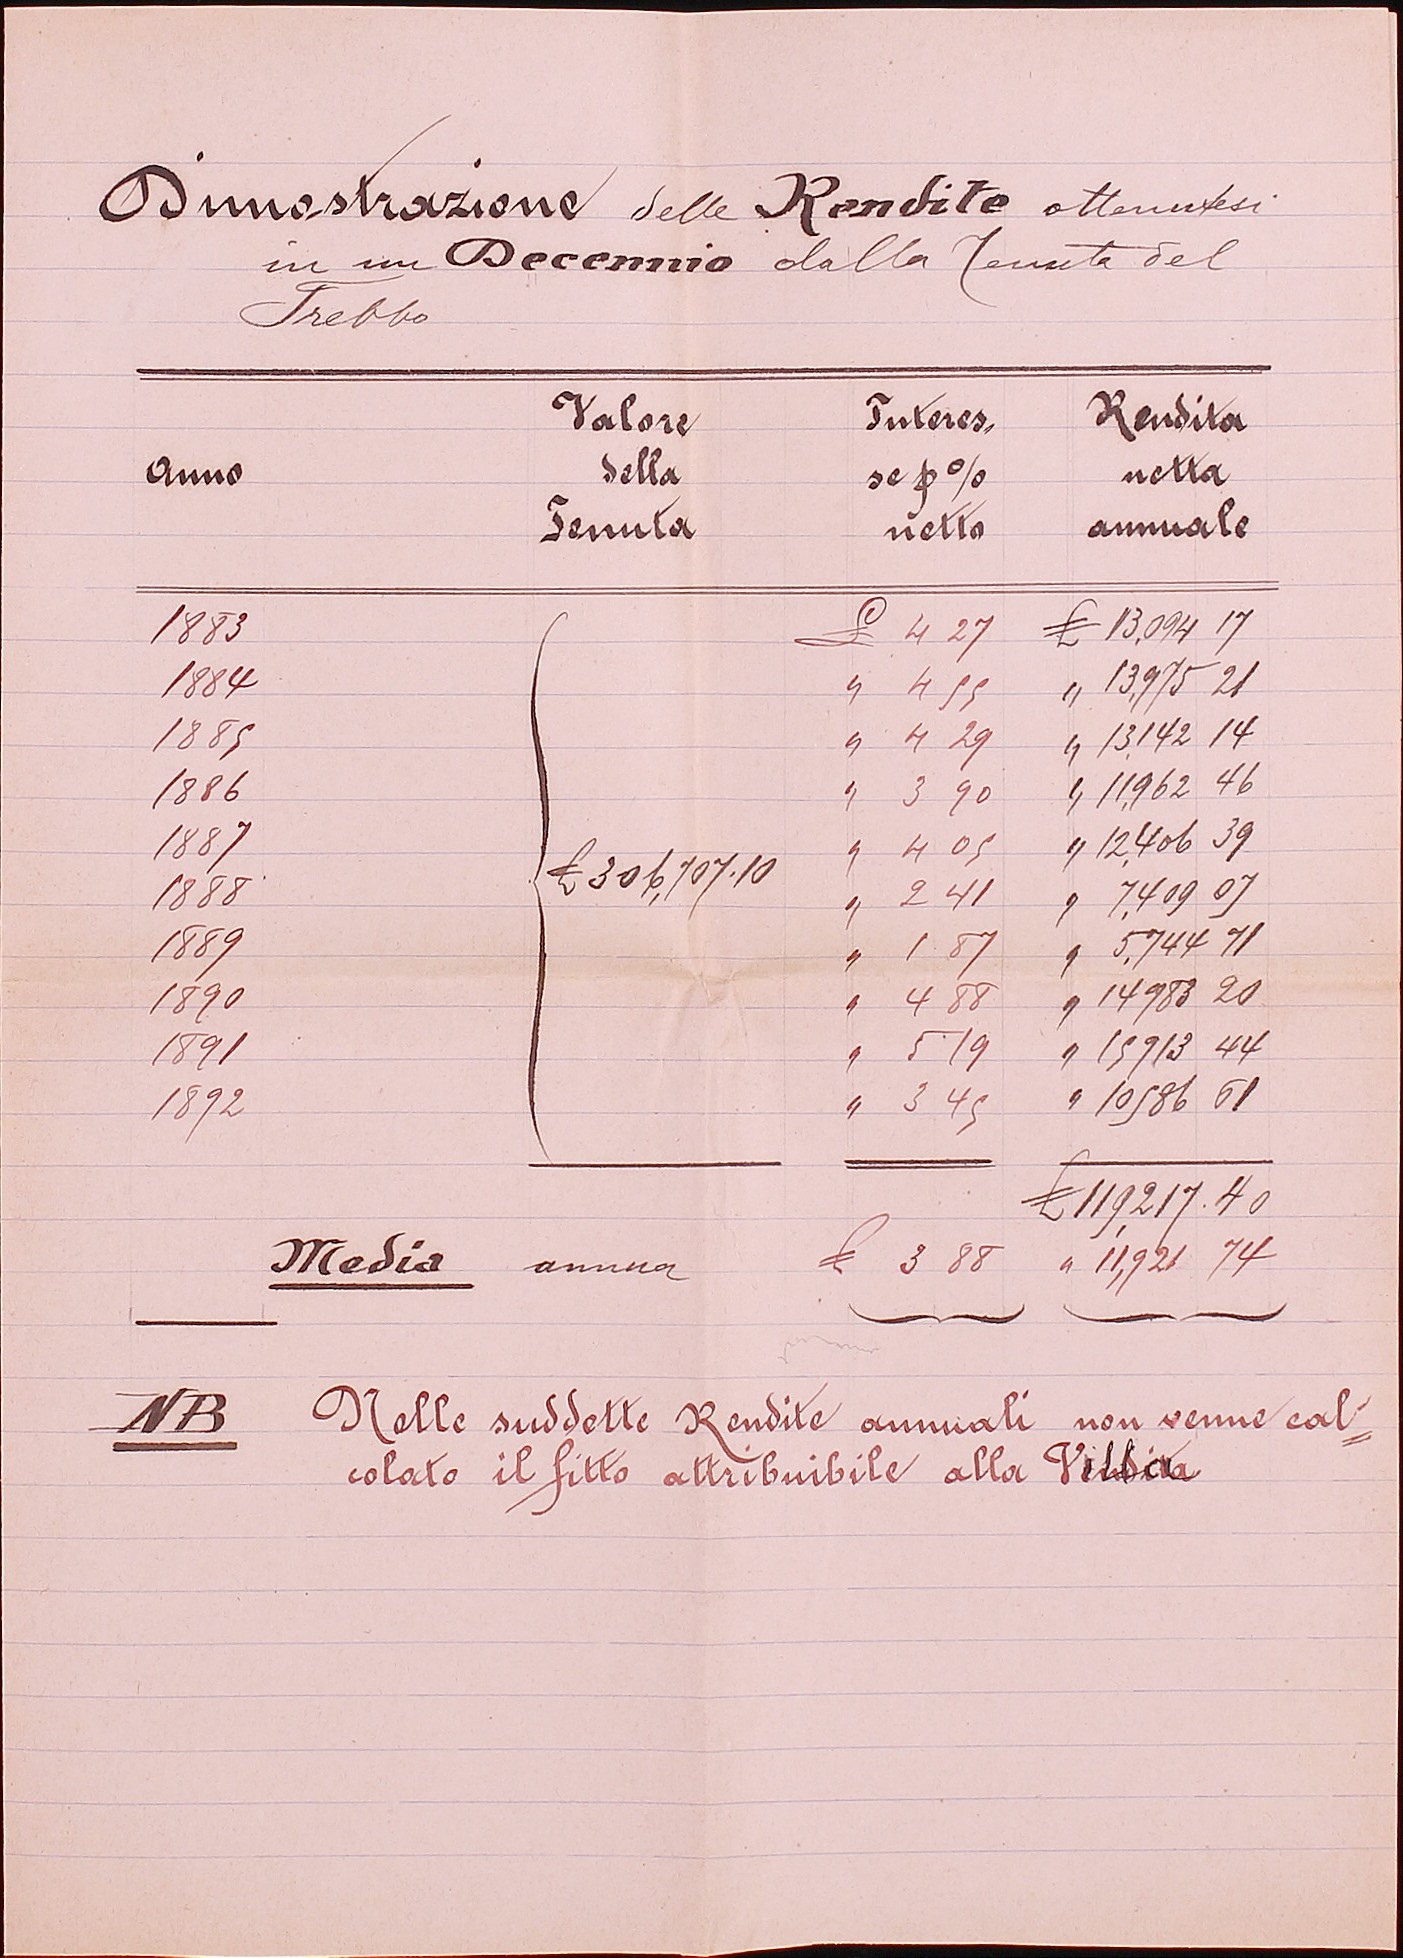 Dimostrazione delle Rendite ottenutesi
in un Decennio dalla Tenuta del
Trebbo
Anno Valore della Tenuta Interes, se p % netto Rendita netta annuale
1883 £ 4 27 £ 13,094 17
1884 " 4 55 " 13,975 21
1885 " 4 29 " 13,142 14
1886 " 3 90 " 11,962 46
1887 " 4 05 " 12,406 39
£ 306,707.10
1888 " 2 41 " 7,409 07
1889 " 1 87 " 5,744 71
1890 " 4 88 " 14983 20
1891 " 5 19 " 15913 44
1892 " 3 45 " 10586 61
£ 119,217.40
Media annua £ 3 88 " 11,921 74
NB Nelle suddette Rendite annuali non venne cal=
colato il fitto attribuibile alla Villa